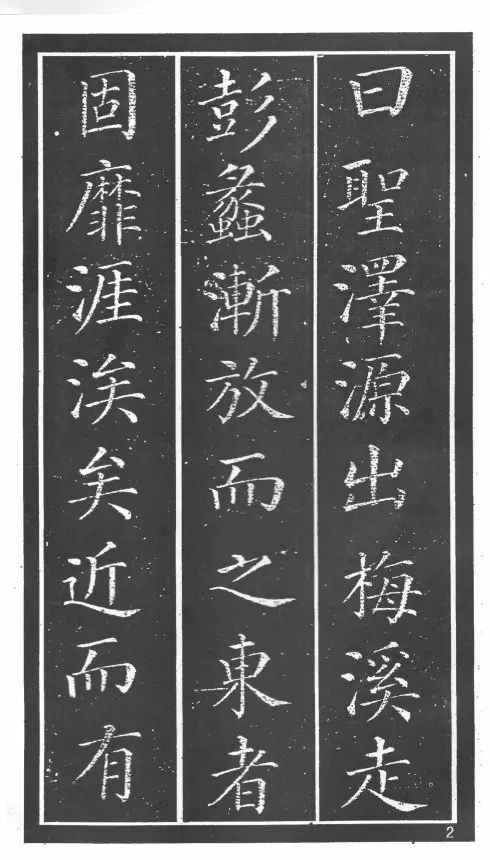 曰聖澤源出梅溪走
彭蠡漸放而之東者
固靡涯涘矣近而有
2